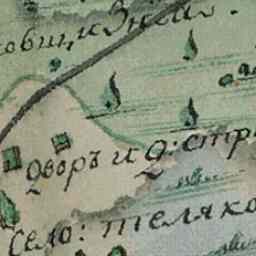 овищ, и
Дворъ и Д: стр
Село: теляко